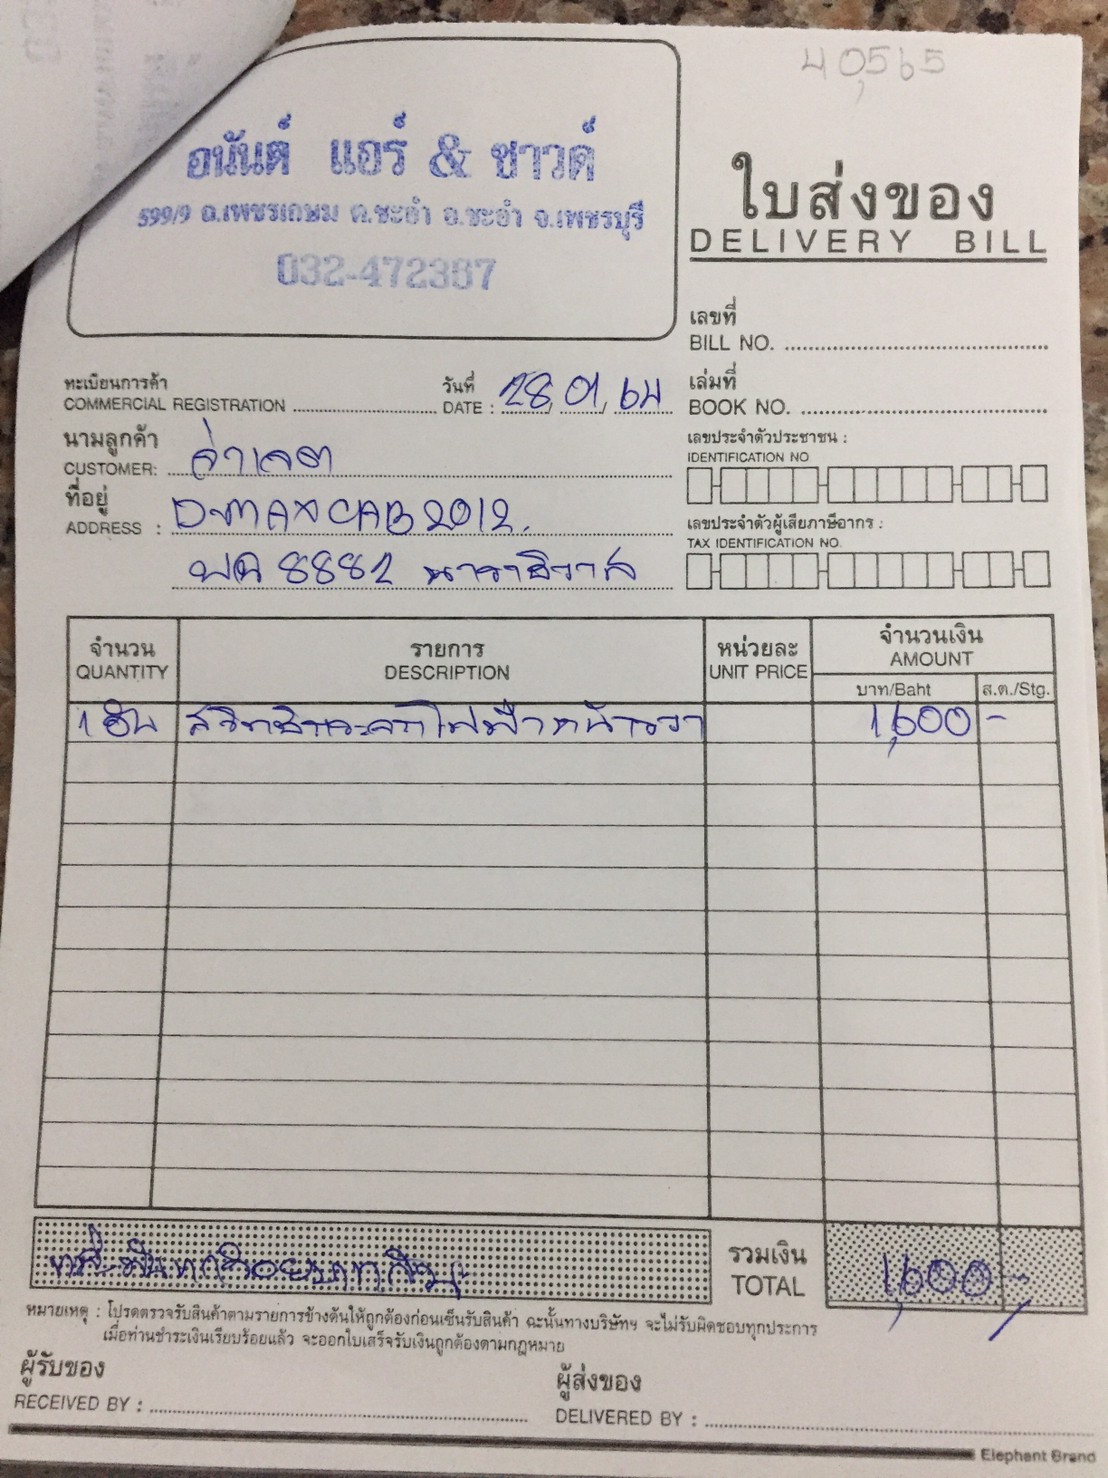 40,565
อนันต์ แอร์ & ซาวด์
599/9 ถ.เพชรเกษม ต.ชะอำ อ.ชะอำ จ.เพชรบุรี
032-472367
ใบส่งของ
DELIVERY BILL
เลขที่
BILL NO.
ทะเบียนการค้า
COMMERCIAL REGISTRATION
วันที่
DATE : 28, 01, 64
เล่มที่
BOOK NO.
นามลูกค้า
CUSTOMER: จ่าเจต
เลขประจำตัวประชาชน :
IDENTIFICATION NO
ที่อยู่
ADDRESS : D-MAX CAB 2012.
8882 นราธิวาส
เลขประจำตัวผู้เสียภาษีอากร :
TAX IDENTIFICATION NO.
จำนวน
QUANTITY
รายการ
DESCRIPTION
หน่วยละ
UNIT PRICE
จำนวนเงิน
AMOUNT
บาท/Baht
ส.ต./Stg.
1 อัน สวิทช์กระจกไฟฟ้าหน้าขวา 1,600 -
หนึ่งพันหกร้อยบาทถ้วน
รวมเงิน
TOTAL 1,600 -
หมายเหตุ : โปรดตรวจรับสินค้าตามรายการข้างต้นให้ถูกต้องก่อนเซ็นรับสินค้า ฉะนั้นทางบริษัทฯ จะไม่รับผิดชอบทุกประการ
เมื่อท่านชำระเงินเรียบร้อยแล้ว จะออกใบเสร็จรับเงินถูกต้องตามกฎหมาย
ผู้รับของ
RECEIVED BY :
ผู้ส่งของ
DELIVERED BY :
Elephant Brand